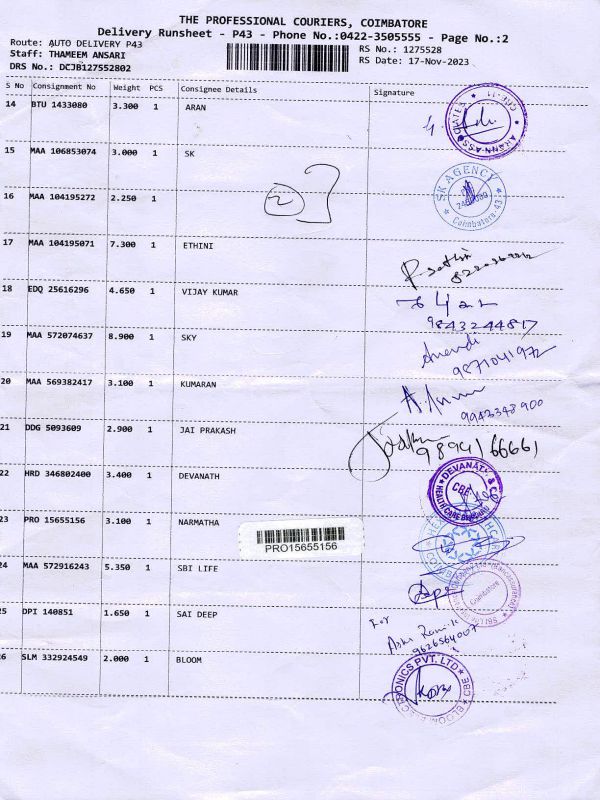 THE PROFESSIONAL COURIERS, COIMBATORE
Delivery Runsheet - P43 - Phone No.:0422-3505555 - Page No.:2
Route: AUTO DELIVERY P43
RS No.: 1275528
Staff: THAMEEM ANSARI
RS Date: 17-Nov-2023
DRS No.: DCJB127552802
S No Consignment No Weight PCS Consignee Details Signature
14 BTU 1433080 3.300 1 ARAN
15 MAA 106853074 3.000 1 SK
SK AGENCY
Coimbatore-43
16 MAA 104195272 2.250 1
17 MAA 104195071 7.300 1 ETHINI
18 EDQ 25616296 4.650 1 VIJAY KUMAR
9843244817
19 MAA 572074637 8.900 1 SKY
9871041972
20 MAA 569382417 3.100 1 KUMARAN
9942348900
21 DDG 5093609 2.900 1 JAI PRAKASH
9894166661
22 HRD 346802400 3.400 1 DEVANATH
DEVANATH & CO
CBE
23 PRO 15655156 3.100 1 NARMATHA
PRO15655156
24 MAA 572916243 5.350 1 SBI LIFE
Coimbatore
25 DPI 140851 1.650 1 SAI DEEP
For
9626564007
26 SLM 332924549 2.000 1 BLOOM
BLOOM ELECTRONICS PVT. LTD
CBE